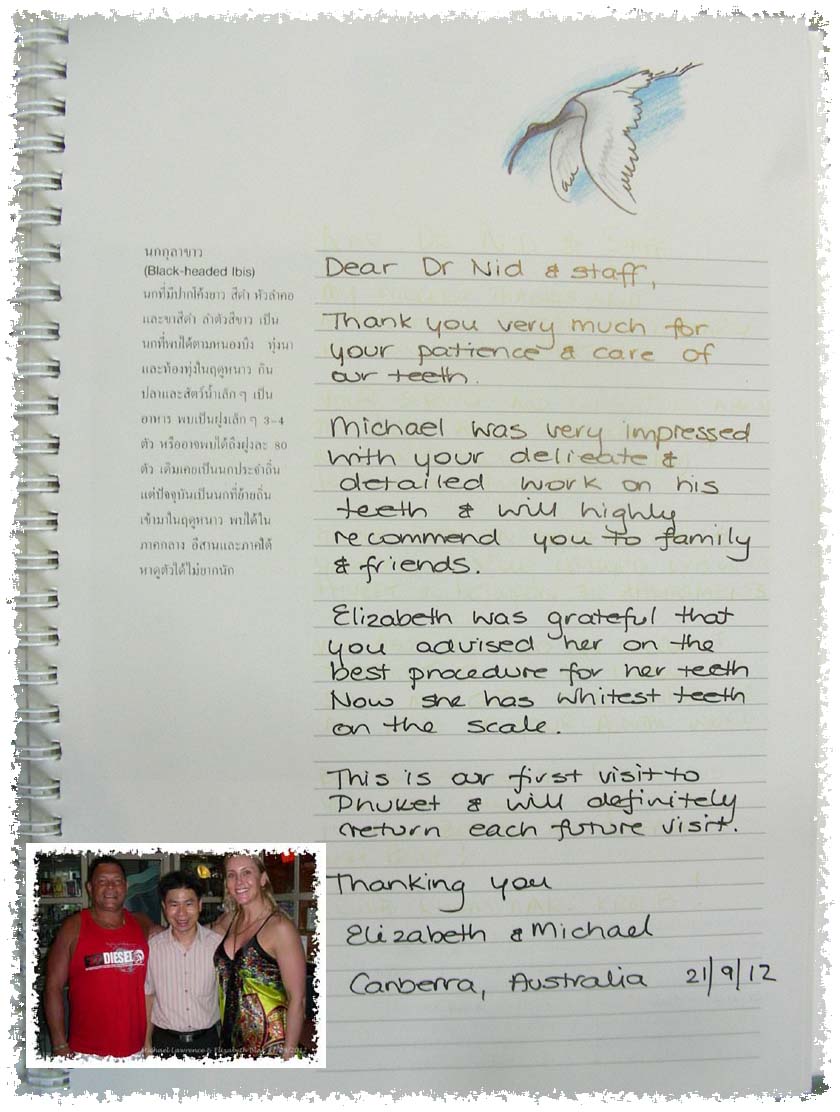 นกกุลาขาว
(Black-headed Ibis)
นกที่มีปากโค้งยาว สีดำ หัวลำคอ
และขาสีดำ ลำตัวสีขาว เป็น
นกที่พบได้ตามหนองบึง ทุ่งนา
และท้องทุ่งในฤดูหนาว กิน
ปลาและสัตว์น้ำเล็กๆ เป็น
อาหาร พบเป็นฝูงเล็กๆ 3-4
ตัว หรืออาจพบได้ถึงฝูงละ 80
ตัว เดิมเคยเป็นนกประจำถิ่น
แต่ปัจจุบันเป็นนกที่ย้ายถิ่น
เข้ามาในฤดูหนาว พบได้ใน
ภาคกลาง อีสานและภาคใต้
หาดูตัวได้ไม่ยากนัก
Dear Dr Nid & staff,
Thank you very much for
your patience & care of
our teeth.
Michael was very impressed
with your delicate &
detailed work on his
teeth & will highly
recommend you to family
& friends.
Elizabeth was grateful that
you advised her on the
best procedure for her teeth
Now she has whitest teeth
on the scale.
This is our first visit to
Phuket & will definitely
return each future visit.
Thanking you
Elizabeth & Michael
Canberra, Australia 21/9/12
DIESEL
Michael Lawrence & Elizabeth